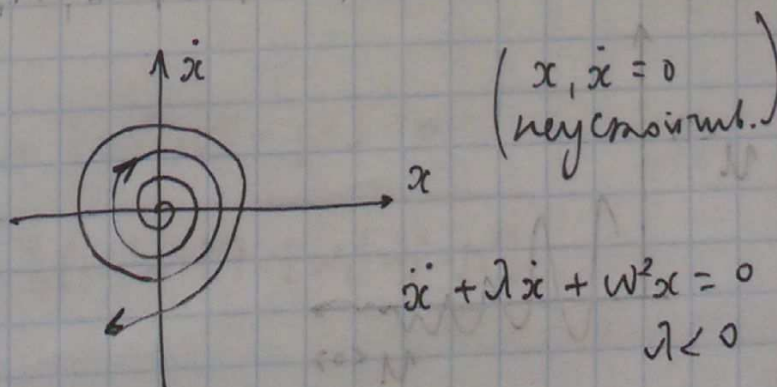 ẋ
x
(x, ẋ = 0
неустойчив.)
ẍ + λẋ + ω²x = 0
λ < 0